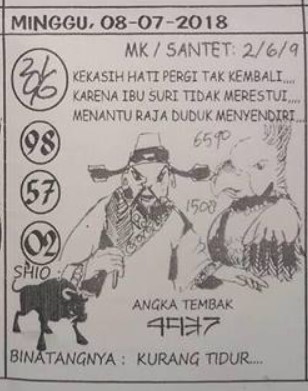 MINGGU, 08-07-2018
MK / SANTET: 2/6/9
KEKASIH HATI PERGI TAK KEMBALI,,,,
KARENA IBU SURI TIDAK MERESTUI,,,,
MENANTU RAJA DUDUK MENYENDIRI,,,,
98
57
02
6590
1500
SHIO :
ANGKA TEMBAK
4937
BINATANGNYA : KURANG TIDUR....